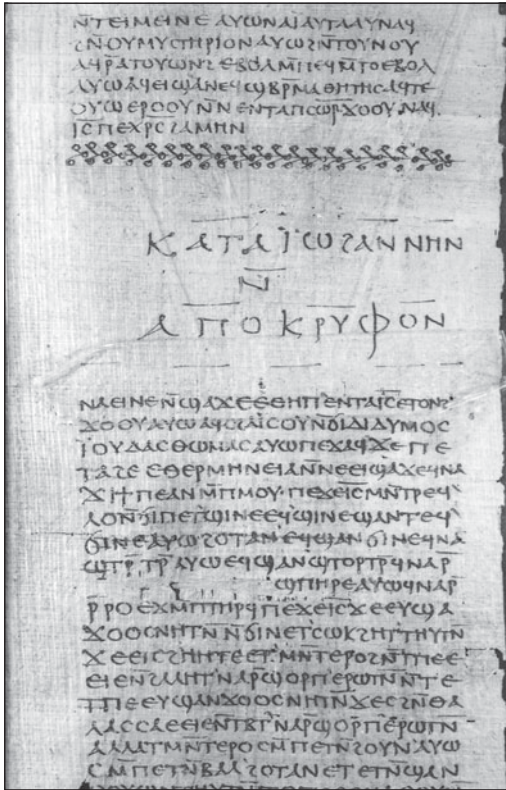 ⲛ̄ⲧⲉⲓⲙⲉⲓⲛⲉ ⲁⲩⲱ ⲛⲁⲓ̈ ⲁⲩⲧⲁⲁⲩ ⲛⲁϥ
ϩⲛ̄ ⲟⲩⲙⲩⲥⲧⲏⲣⲓⲟⲛ ⲁⲩⲱ ϩⲛ̄ ⲧⲟⲩⲛⲟⲩ
ⲁϥⲣ̄ ⲁⲧⲟⲩⲱⲛϩ ⲉⲃⲟⲗ ⲙ̄ⲡⲉϥⲙ̄ⲧⲟ ⲉⲃⲟⲗ
ⲁⲩⲱ ⲁϥⲉⲓ ϣⲁ ⲛⲉϥϣⲃⲣ̄ⲙⲁⲑⲏⲧⲏⲥ ⲁϥⲧⲉ
ⲟⲩⲱ ⲉⲣⲟⲟⲩ ⲛ̄ⲛⲉⲛⲧⲁⲡⲥⲱⲣ̄ ϫⲟⲟⲩ ⲛⲁϥ
ⲓ̅ⲥ̅ ⲡⲉⲭⲣ̅ⲥ̅ ϩⲁⲙⲏⲛ
ⲕⲁⲧⲁ ⲓ̈ⲱϩⲁⲛⲛⲏⲛ
ⲛ̄
ⲁⲡⲟⲕⲣⲩⲫⲟⲛ
ⲛⲁⲉⲓ ⲛⲉ ⲛ̄ϣⲁϫⲉ ⲉⲑⲏⲡ ⲉⲛⲧⲁⲓ̅ⲥ̅ ⲉⲧⲟⲛϩ
ϫⲟⲟⲩ ⲁⲩⲱ ⲁϥⲥϩⲁⲓⲥⲟⲩ ⲛ̄ϭⲓ ⲇⲓⲇⲩⲙⲟⲥ
ⲓ̈ⲟⲩⲇⲁⲥ ⲑⲱⲙⲁⲥ ⲁⲩⲱ ⲡⲉϫⲁϥ ϫⲉ ⲡⲉ
ⲧⲁϩⲉ ⲉⲑⲉⲣⲙⲏⲛⲉⲓⲁ ⲛ̄ⲛⲉⲉⲓϣⲁϫⲉ ϥⲛⲁ
ϫⲓ ϯⲡⲉ ⲁⲛ ⲙ̄ⲡⲙⲟⲩ ⲡⲉϫⲉ ⲓ̅ⲥ̅ ⲙⲛ̄ⲧⲣⲉϥ
ⲗⲟ ⲛ̄ϭⲓ ⲡⲉⲧϣⲓⲛⲉ ⲉϥϣⲓⲛⲉ ϣⲁⲛⲧⲉϥ
ϭⲓⲛⲉ ⲁⲩⲱ ϩⲟⲧⲁⲛ ⲉϥϣⲁⲛϭⲓⲛⲉ ϥⲛⲁ
ϣⲧⲣ̄ⲧⲣ̄ ⲁⲩⲱ ⲉϥϣⲁⲛϣⲧⲟⲣⲧⲣ̄ ϥⲛⲁⲣ̄
ϣⲡⲏⲣⲉ ⲁⲩⲱ ϥⲛⲁⲣ̄
ⲣ̄ⲣⲟ ⲉϫⲙ̄ ⲡⲧⲏⲣϥ ⲡⲉϫⲉ ⲓ̅ⲥ̅ ϫⲉ ⲉⲩϣⲁ
ϫⲟⲟⲥ ⲛⲏⲧⲛ̄ ⲛ̄ϭⲓ ⲛⲉⲧⲥⲱⲕ ϩⲏⲧ ⲑⲏⲩⲧⲛ̄
ϫⲉ ⲉⲓⲥϩⲏⲏⲧⲉ ⲉⲧⲙⲛ̄ⲧⲉⲣⲟ ϩⲛ̄ ⲧⲡⲉ ⲉ
ⲉⲓⲉ ⲛ̄ϩⲁⲗⲏⲧ ⲛⲁⲣ̄ ϣⲟⲣⲡ ⲉⲣⲱⲧⲛ̄ ⲛ̄ⲧⲉ
ⲧⲡⲉ ⲉⲩϣⲁⲛϫⲟⲟⲥ ⲛⲏⲧⲛ̄ ϫⲉ ⲥϩⲛ̄ ⲑⲁ
ⲗⲁⲥⲥⲁ ⲉⲉⲓⲉ ⲛ̄ⲧⲃⲧ ⲛⲁⲣ̄ ϣⲟⲣⲡ ⲉⲣⲱⲧⲛ̄
ⲁⲗⲗⲁ ⲧⲙⲛ̄ⲧⲉⲣⲟ ⲥⲙ̄ⲡⲉⲧⲛ̄ϩⲟⲩⲛ ⲁⲩⲱ
ⲥⲙ̄ⲡⲉⲧⲛ̄ⲃⲁⲗ ϩⲟⲧⲁⲛ ⲉⲧⲉⲧⲛ̄ϣⲁⲛ